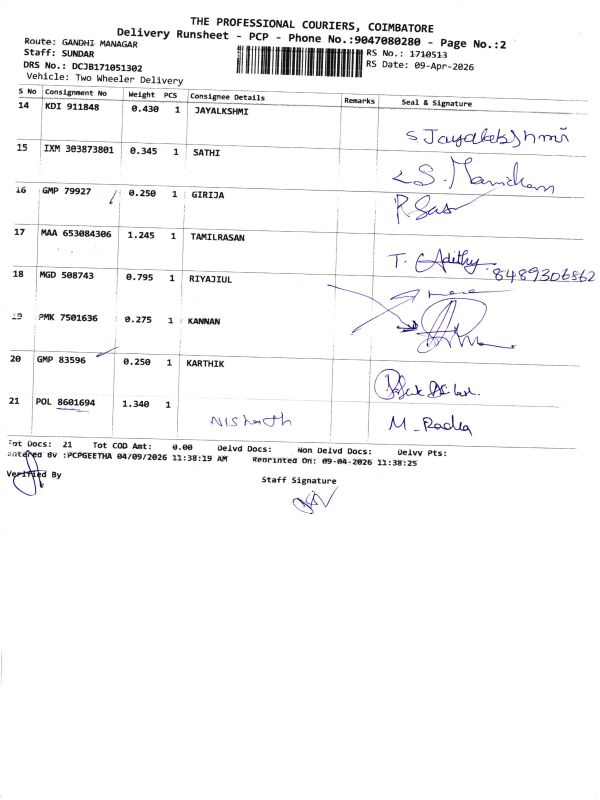 THE PROFESSIONAL COURIERS, COIMBATORE
Delivery Runsheet - PCP - Phone No.:9047080280 - Page No.:2
Route: GANDHI MANAGAR
RS No.: 1710513
Staff: SUNDAR
RS Date: 09-Apr-2026
DRS No.: DCJB171051302
Vehicle: Two Wheeler Delivery
S No Consignment No Weight PCS Consignee Details Remarks Seal & Signature
14 KDI 911848 0.430 1 JAYALKSHMI
S Jayalakshmi
15 IXM 303873801 0.345 1 SATHI
S. Manickam
16 GMP 79927 0.250 1 GIRIJA
17 MAA 653084306 1.245 1 TAMILRASAN
T. Adithy 8489306862
18 MGD 508743 0.795 1 RIYAJIUL
19 PMK 7501636 0.275 1 KANNAN
20 GMP 83596 0.250 1 KARTHIK
21 POL 8601694 1.340 1 Nishanth M. Radha
Tot Docs: 21 Tot COD Amt: 0.00 Delvd Docs: Non Delvd Docs: Delvy Pts:
Entered By :PCPGEETHA 04/09/2026 11:38:19 AM Reprinted On: 09-04-2026 11:38:25
Verified By
Staff Signature